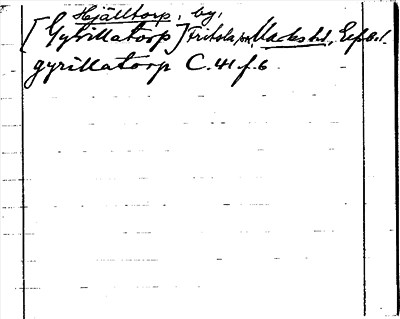 Hjälltorp, by,
[Gyrillatorp] Fritsla sn, Marks hd, Elfsb. l.
gyrillatorp C. 41 f. 6